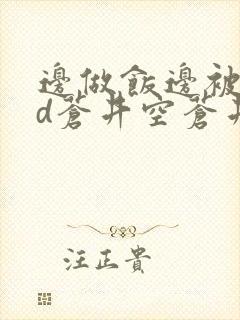 邊做飯邊被
d蒼井空蒼井
汪正貴